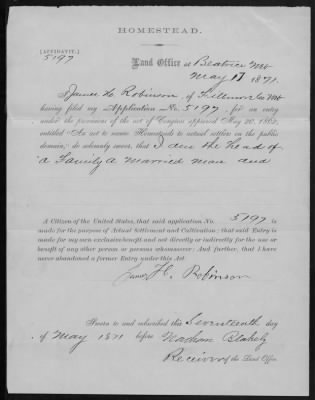 HOMESTEAD.
[AFFIDAVIT.]
5197
Land Office at Beatrice Neb
May 17 1871.
I James H. Robinson, of Fillmore Co. Neb
having filed my Application No. 5197, for an entry
under the provisions of the act of Congress approved May 20, 1862,
entitled An act to secure Homesteads to actual settlers on the public
domain; do solemnly swear, that I am the head of
a Family a Married man and
A Citizen of the United States, that said application No. 5197 is
made for the purpose of Actual Settlement and Cultivation; that said Entry is
made for my own exclusive benefit and not directly or indirectly for the use or
benefit of any other person or persons whomsoever. And further, that I have
never abandoned a former Entry under this Act.
James H. Robinson
Sworn to and subscribed this Seventeenth day
of May 1871 before Nathan Blakely
Receiver of the Land Office.